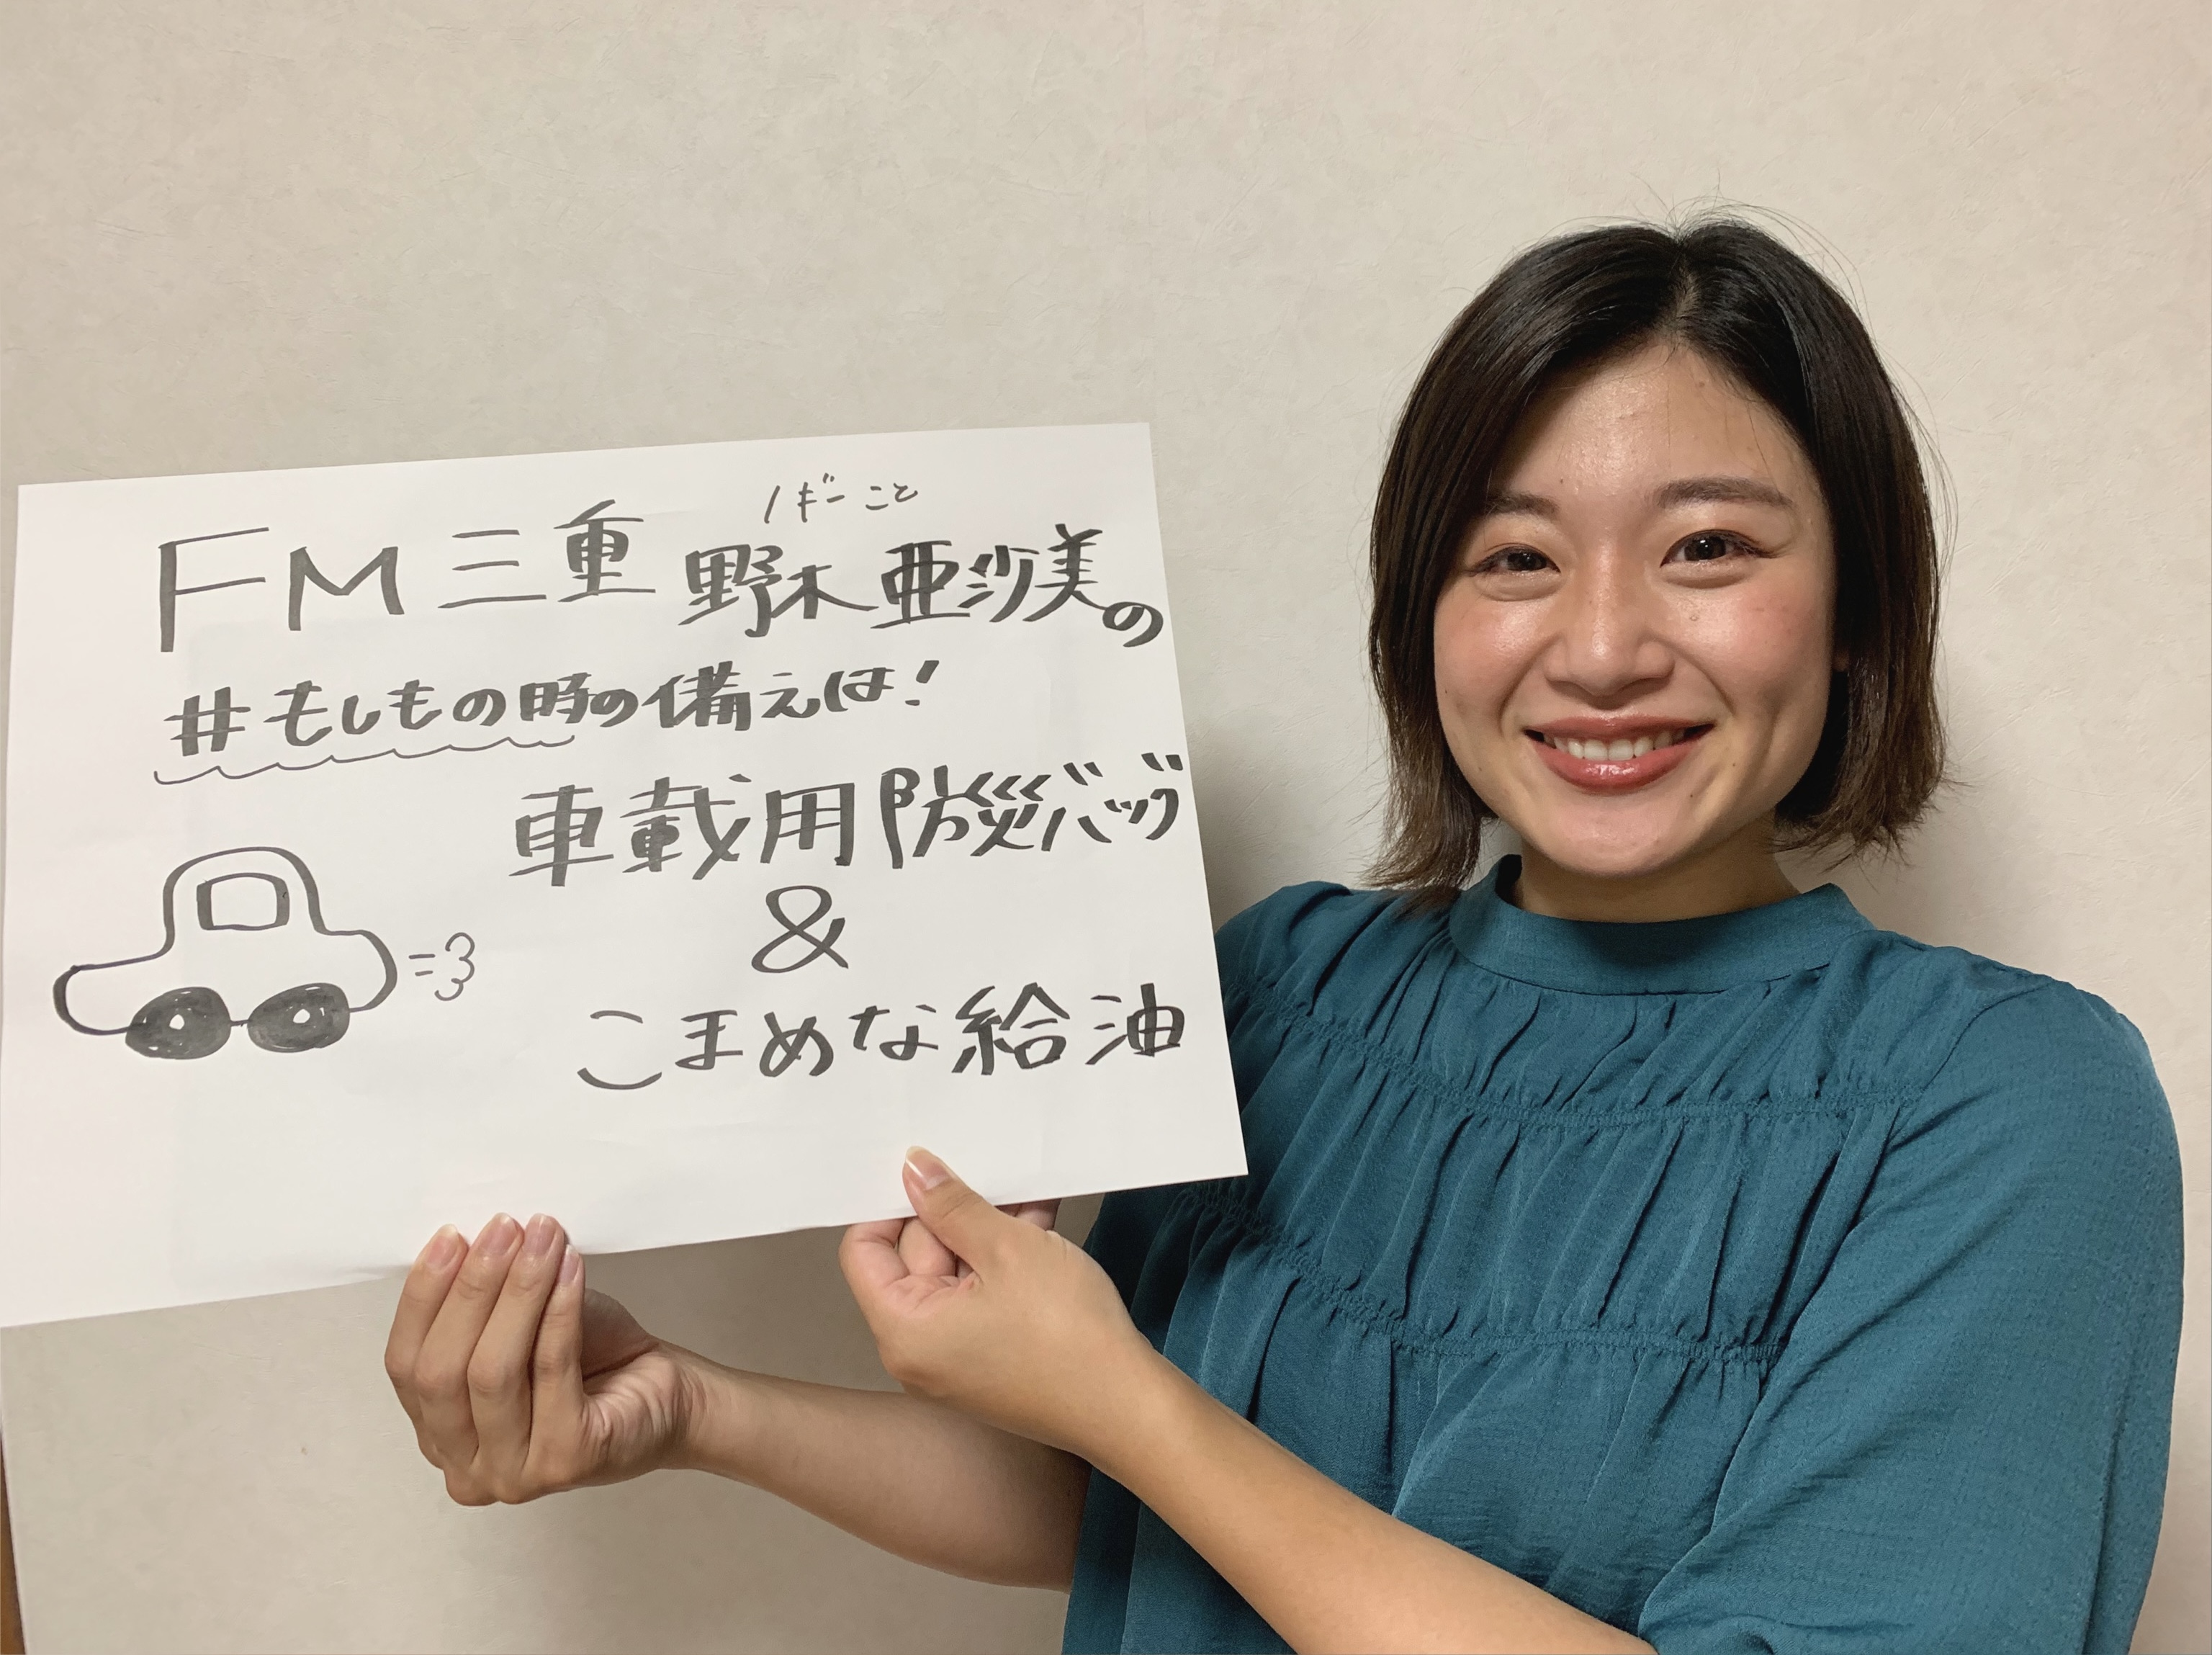 ノギーこと
FM三重 野木亜沙美の
#もしもの時の備えは!
車載用防災バッグ
&
こまめな給油